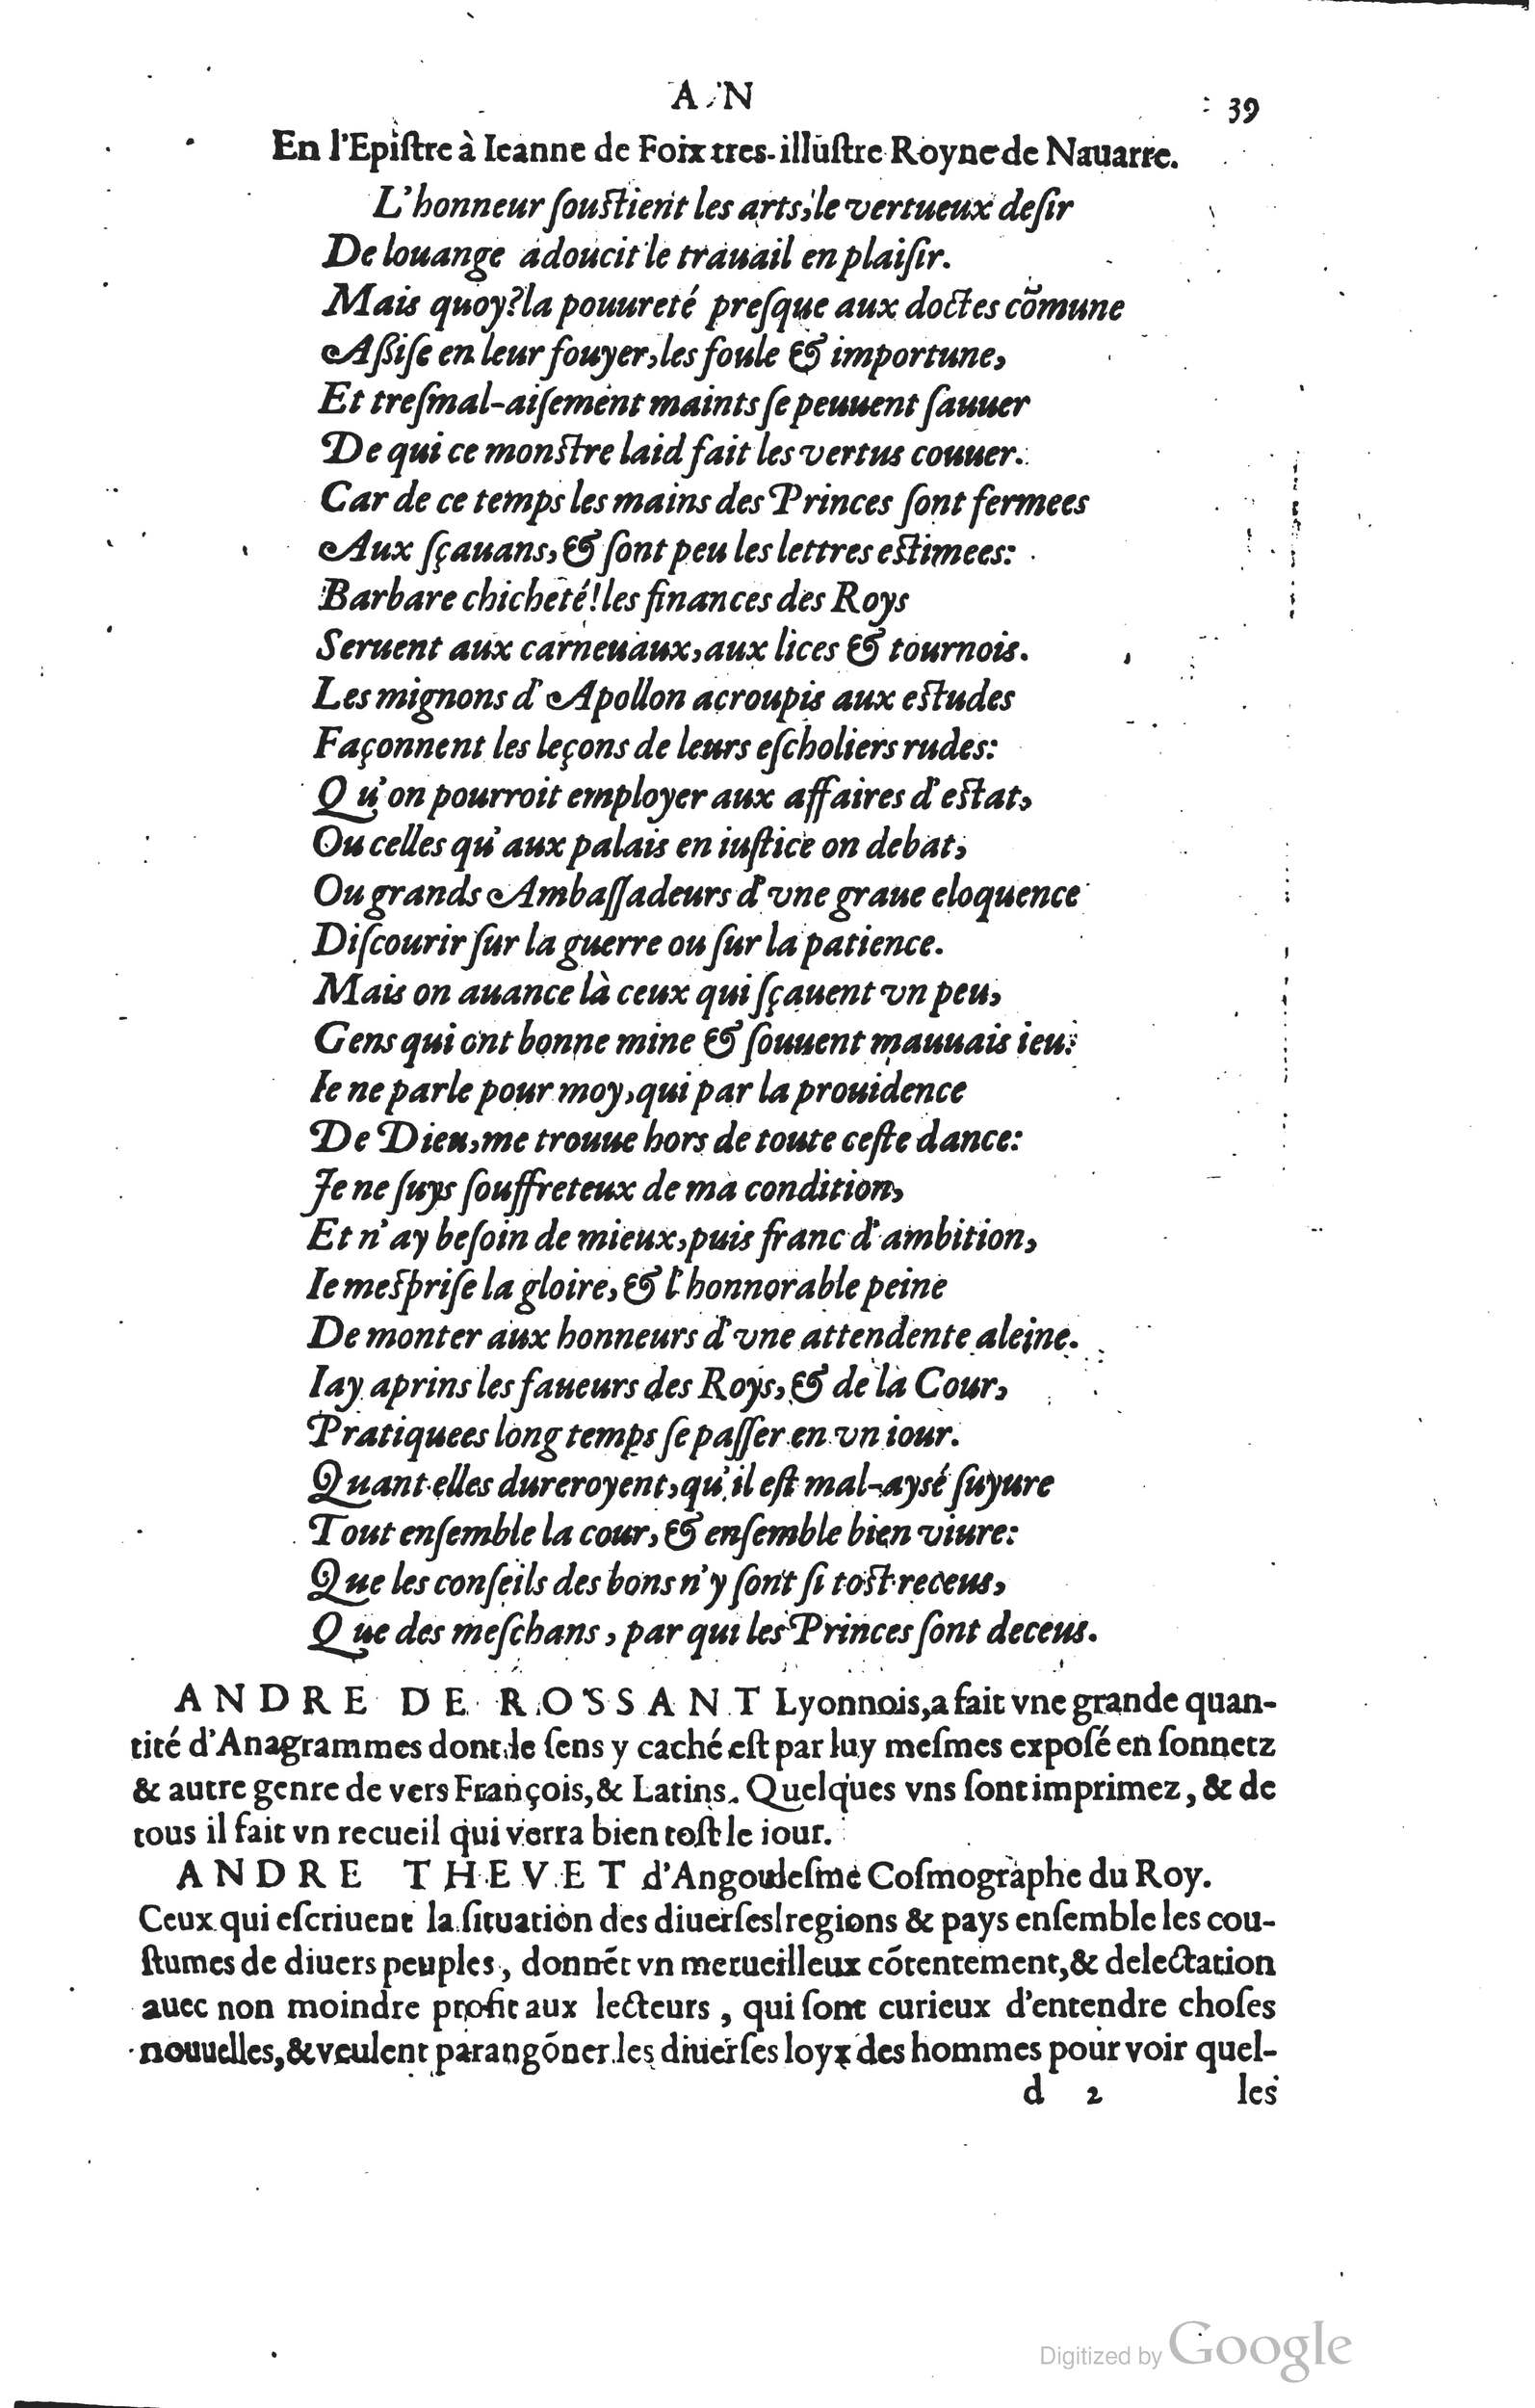 A N
39
En l'Epiſtre à Ieanne de Foix tres-illuſtre Royne de Nauarre.
L'honneur ſouſtient les arts, le vertueux deſir
De louange adoucit le trauail en plaiſir.
Mais quoy? la pouureté preſque aux doctes cõmune
Aßiſe en leur fouyer, les foule & importune,
Et treſmal-aiſement maints ſe peuuent ſauuer
De qui ce monſtre laid fait les vertus couuer.
Car de ce temps les mains des Princes ſont fermees
Aux ſçauans, & ſont peu les lettres eſtimees:
Barbare chicheté! les finances des Roys
Seruent aux carneuaux, aux lices & tournois.
Les mignons d'Apollon acroupis aux eſtudes
Façonnent les leçons de leurs eſcholiers rudes:
Qu'on pourroit employer aux affaires d'eſtat,
Ou celles qu'aux palais en iuſtice on debat,
Ou grands Ambaſſadeurs d'vne graue eloquence
Diſcourir ſur la guerre ou ſur la patience.
Mais on auance là ceux qui ſçauent vn peu,
Gens qui ont bonne mine & ſouuent mauuais ieu:
Ie ne parle pour moy, qui par la prouidence
De Dieu, me trouue hors de toute ceſte dance:
Je ne ſuys ſouffreteux de ma condition,
Et n'ay beſoin de mieux, puis franc d'ambition,
Ie meſpriſe la gloire, & l'honnorable peine
De monter aux honneurs d'vne attendente aleine.
Iay aprins les faueurs des Roys, & de la Cour,
Pratiquees long temps ſe paſſer en vn iour.
Quant elles dureroyent, qu'il eſt mal-aysé ſuyure
Tout enſemble la cour, & enſemble bien viure:
Que les conſeils des bons n'y ſont ſi toſt receus,
Que des meſchans, par qui les Princes ſont deceus.
ANDRE DE ROSSANT Lyonnois, a fait vne grande quan-
tité d'Anagrammes dont le ſens y caché eſt par luy meſmes expoſé en ſonnetz
& autre genre de vers François, & Latins. Quelques vns ſont imprimez, & de
tous il fait vn recueil qui verra bien toſt le iour.
ANDRE THEVET d'Angouleſme Coſmographe du Roy.
Ceux qui eſcriuent la ſituation des diuerſes regions & pays enſemble les cou-
ſtumes de diuers peuples, donnẽt vn merueilleux cõtentement, & delectation
auec non moindre profit aux lecteurs, qui ſont curieux d'entendre choſes
nouuelles, & veulent parangõner les diuerſes loyx des hommes pour voir quel-
d 2 les
Digitized by Google